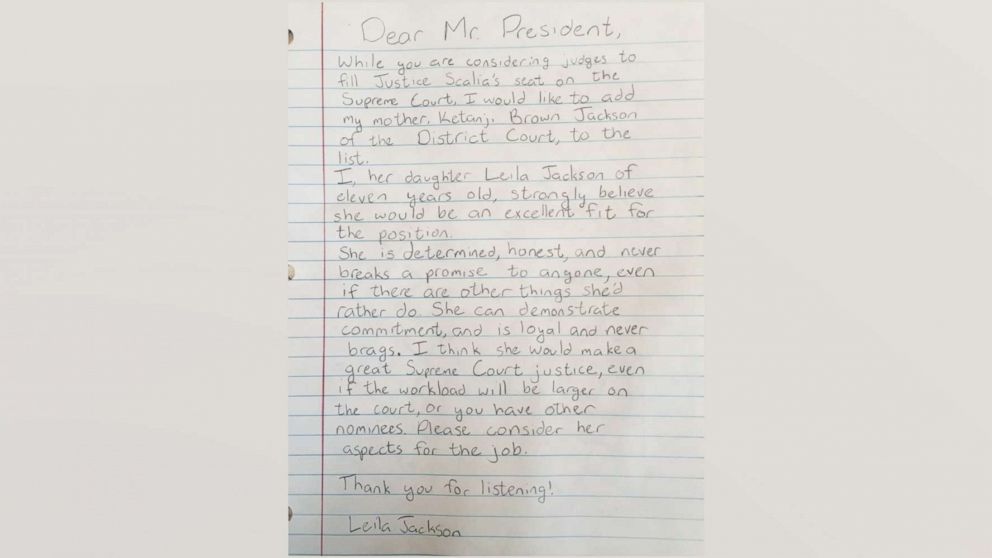 Dear Mr. President,
While you are considering judges to
fill Justice Scalia's seat on the
Supreme Court, I would like to add
my mother, Ketanji Brown Jackson
of the District Court, to the
list.
I, her daughter Leila Jackson of
eleven years old, strongly believe
she would be an excellent fit for
the position.
She is determined, honest, and never
breaks a promise to anyone, even
if there are other things she'd
rather do. She can demonstrate
commitment, and is loyal and never
brags. I think she would make a
great Supreme Court justice, even
if the workload will be larger on
the court, or you have other
nominees. Please consider her
aspects for the job.
Thank you for listening!
Leila Jackson